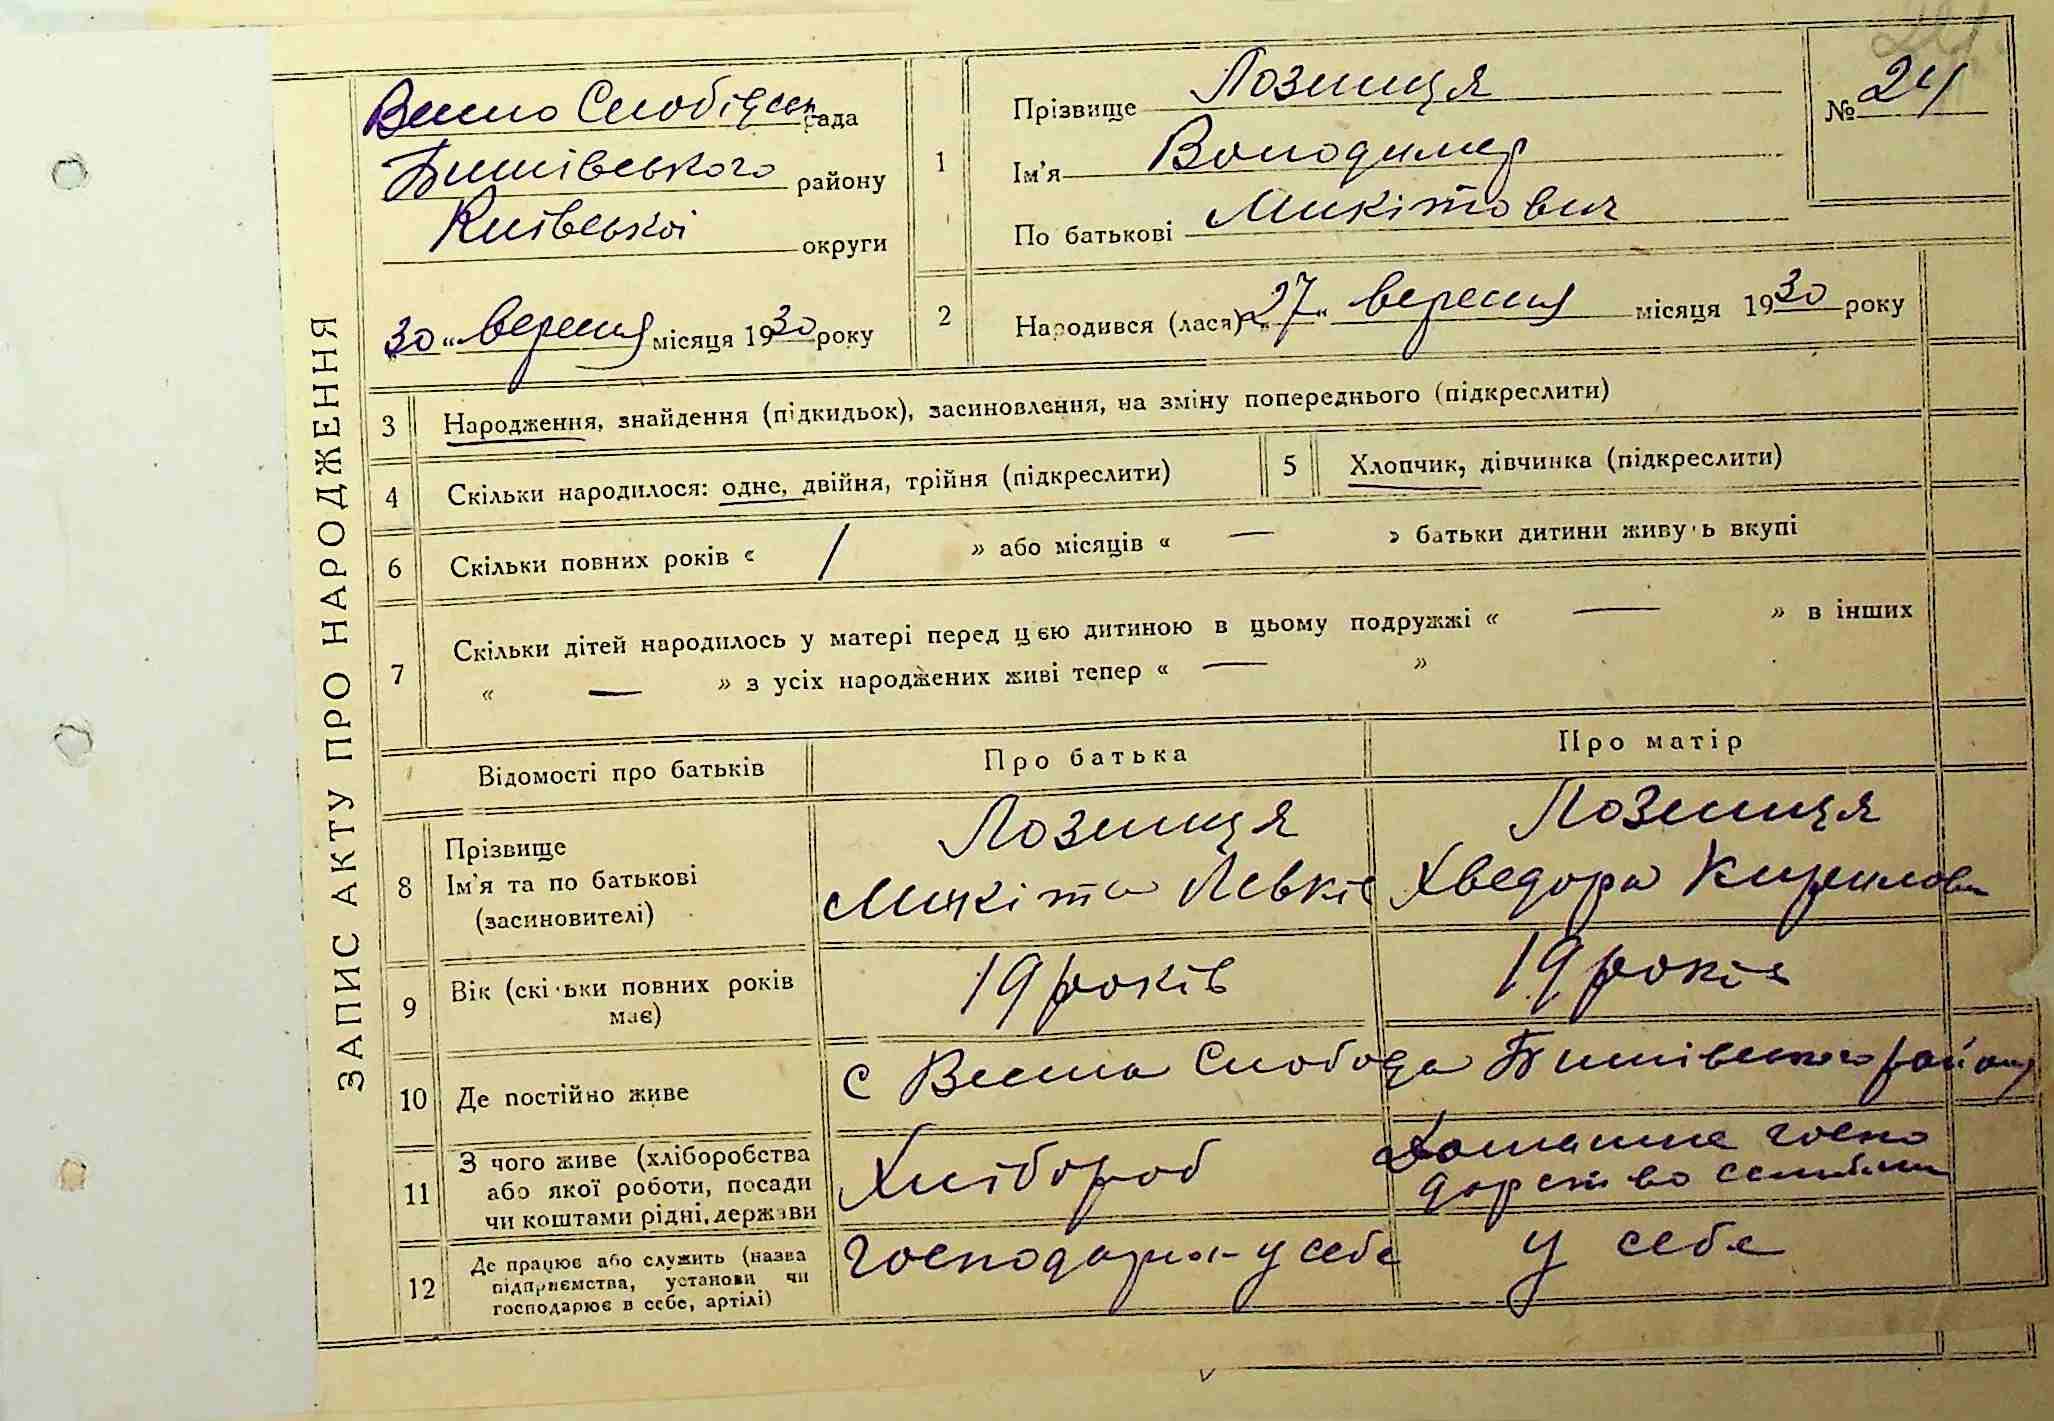 ЗАПИС АКТУ ПРО НАРОДЖЕННЯ
Весело Слобідськ рада
Бишівського району
Київської округи
30 « вересня місяця 1930 року
1
Прізвище Лозниця
Ім'я Володимер
По батькові Микітович
№ 24
2
Народився (лася) « 27 « вересня місяця 1930 року
3 Народження, знайдення (підкидьок), засиновлення, на зміну попереднього (підкреслити)
4 Скільки народилося: одне, двійня, трійня (підкреслити)
5 Хлопчик, дівчинка (підкреслити)
6 Скільки повних років « / » або місяців « — » батьки дитини живу ь вкупі
7 Скільки дітей народилось у матері перед цією дитиною в цьому подружжі « — » в інших
« — » з усіх народжених живі тепер « — »
Відомості про батьків
Про батька
Про матір
8 Прізвище
Ім'я та по батькові
(засиновителі)
Лозниця
Микіта Левків
Лозниця
Хведора Кирилов
9 Вік (скі ьки повних років
має)
19 років
19 років
10 Де постійно живе
с Весела Слобода Бишівського району
11 З чого живе (хліборобства
або якої роботи, посади
чи коштами рідні, держави
Хлібороб
Домашне госпо
дарство
12 Де працює або служить (назва
підприємства, установи чи
господарює в себе, артілі)
Господарює у себе
у себе